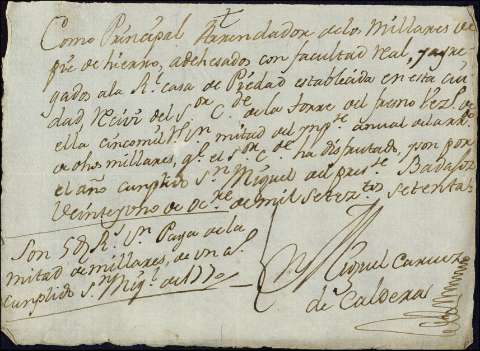 Como Principal Arrendador de los Millares de
pie de hierro, adehesados con facultad Real, y agre
gados ala Rl. casa de Piedad establecida en esta ciu
dad Recivi del Sor. C. de de la Torre del fresno vezo. de
ella cinco mil Rs. Vn. mitad del impte. anual del arrdo.
de dhos millares, qe. el Sor. C. de ha disfrutado, y son por
el año cumplido Sn. Miguel del preste. Badajoz
Veinte y uno de Ocre. de mil setezs. setenta
Son 5@ Rs. Vn. Paga de la
mitad de millares, de un a.
cumplido Sn. Migl. de 1770
Miguel
de Caldera